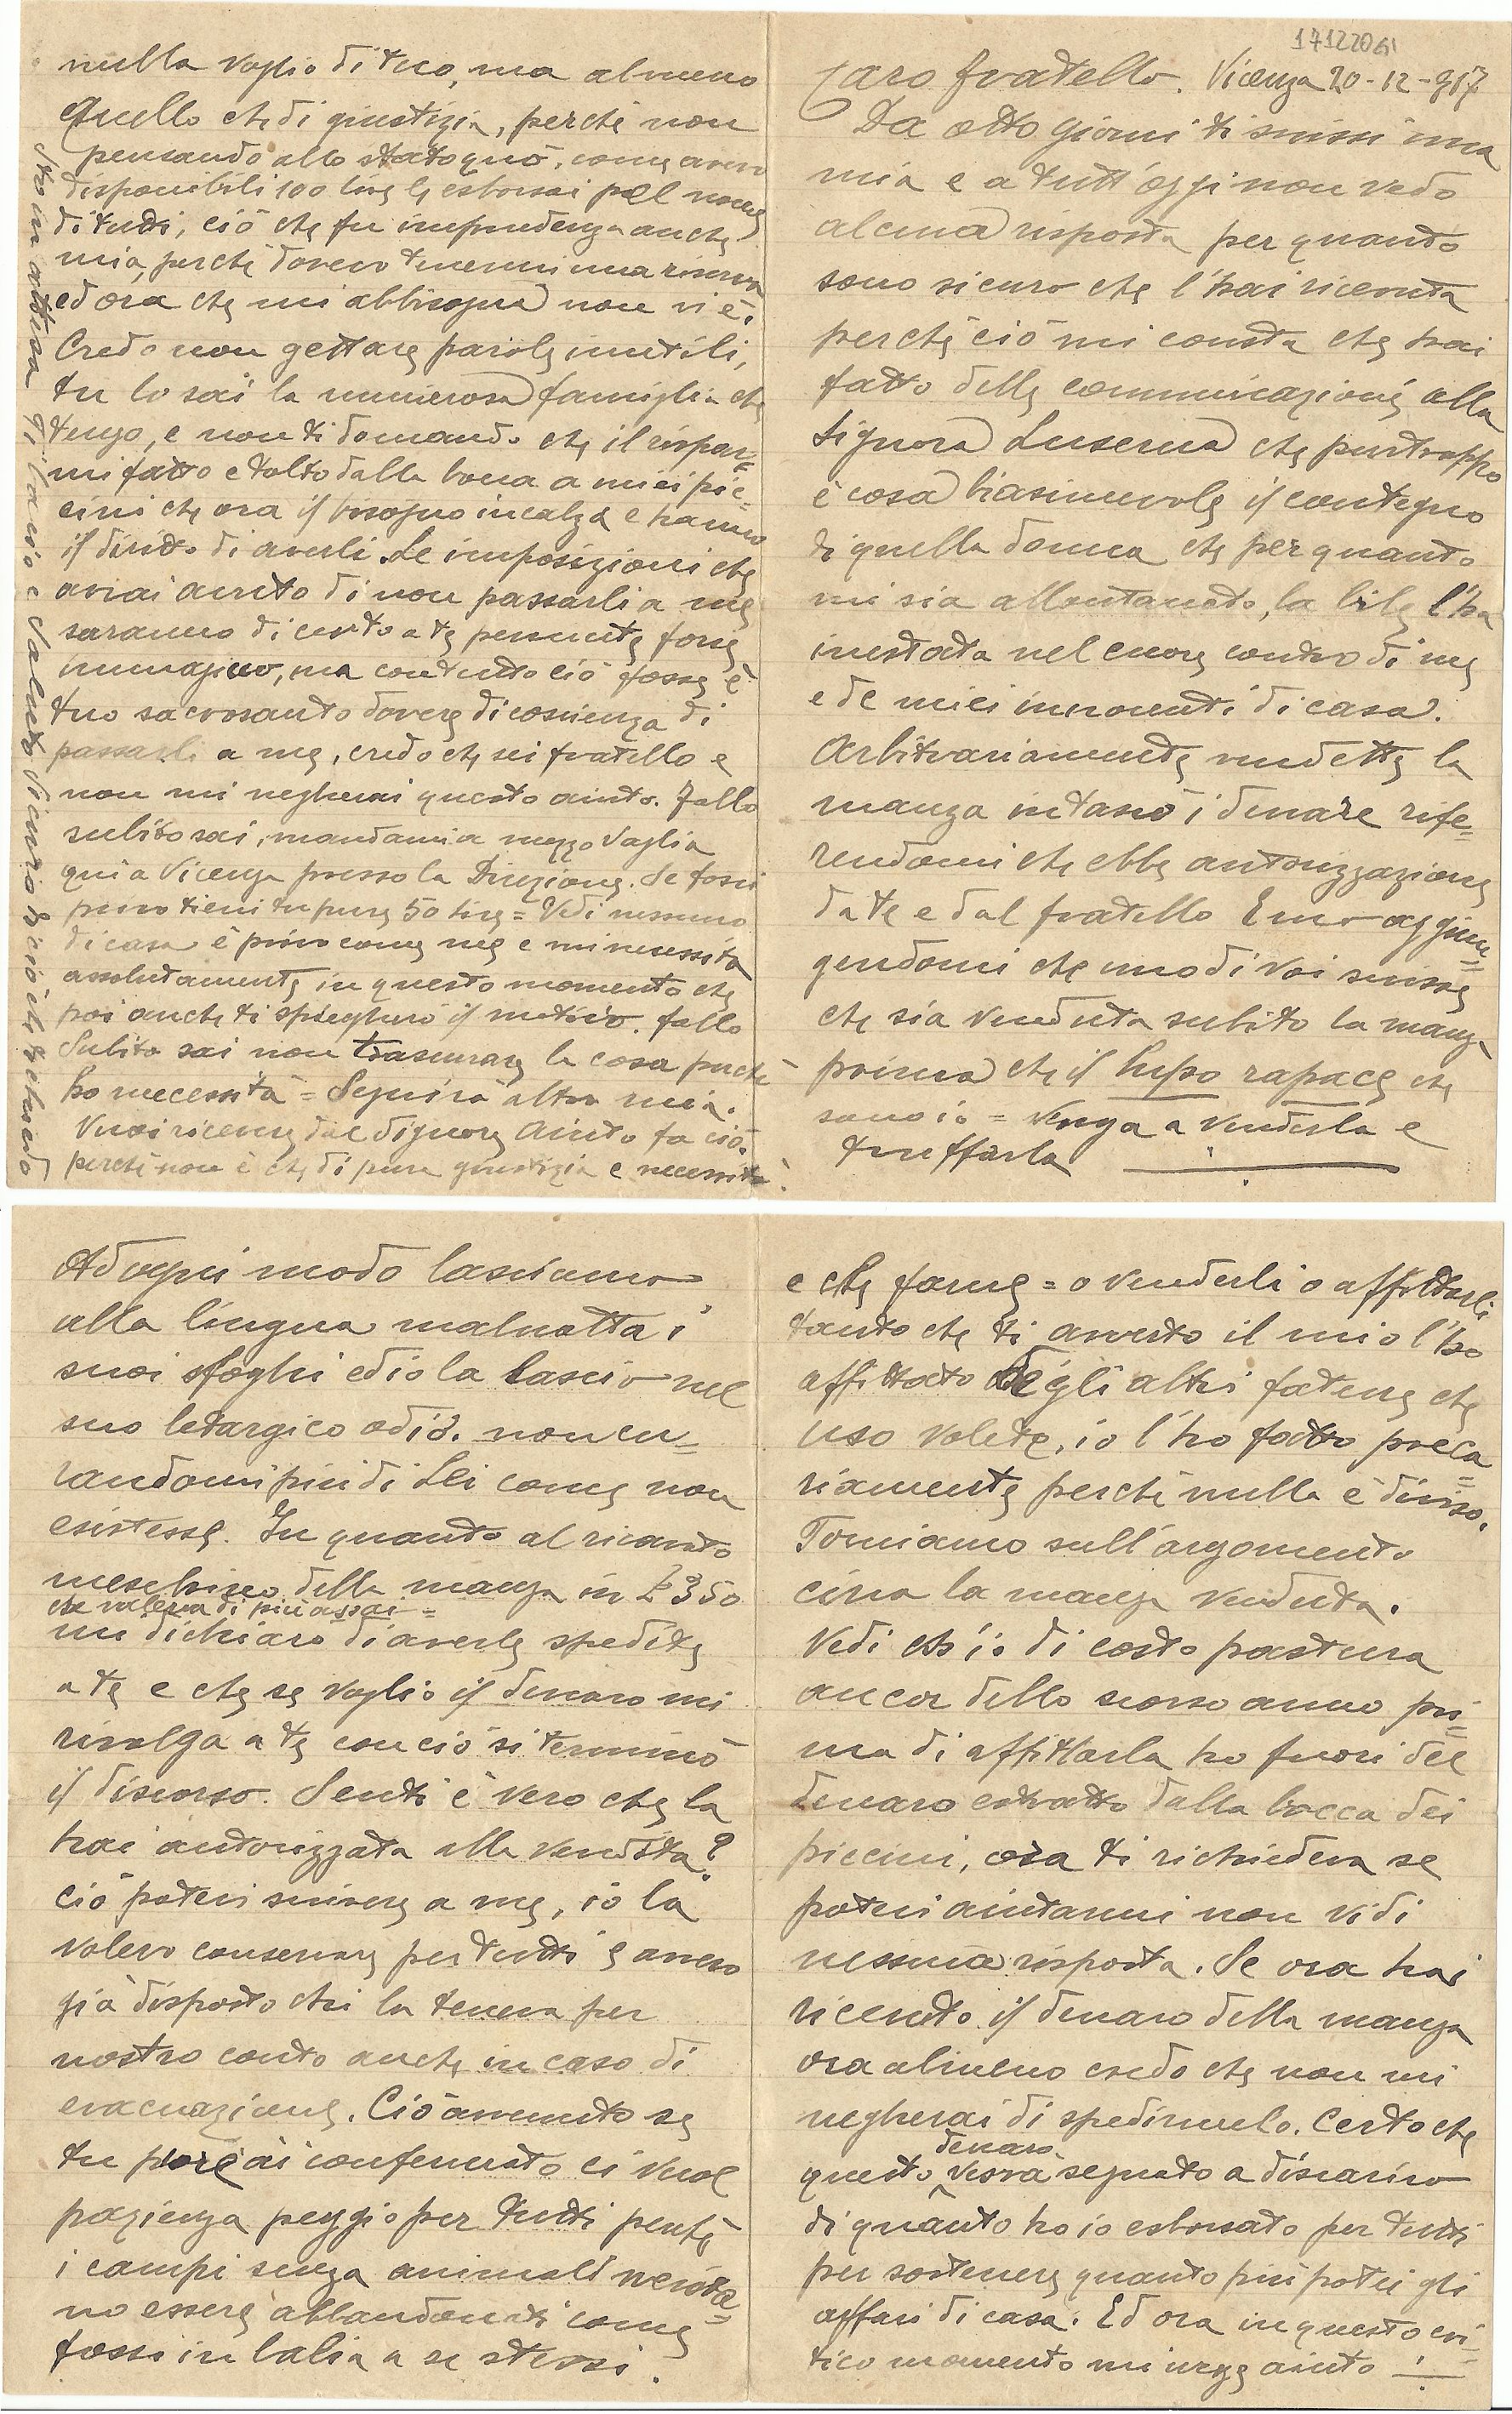 17122061
Caro fratello. Vicenza 20-12-917
Da otto giorni ti scrissi una
mia e a tutt'oggi non vedo
alcuna risposta per quanto
sono sicuro che l'hai ricevuta
perchè ciò mi consta che hai
fatto delle comunicazioni alla
Signora Luserna che purtroppo
è cosa biasimevole il contegno
di quella donna che per quanto
mi sia allontanato, la bile l'ha
inestata nel cuore contro di me
e de miei innocenti di casa.
Arbitrariamente vendette la
manza intascò i denare rife=
rendomi che ebbe autorizzazione
da te e dal fratello Emo aggiun=
gendomi che uno di voi scrisse
che sia venduta subito la manza
prima che il lupo rapace che
sono io = venga a venderla e
truffarla
Ad ogni modo lasciamo
alla lingua malnatta i
suoi sfoghi ed io la lascio nel
suo letargico odio. non cu=
randomi più di Lei come non
esistesse. In quanto al ricavato
meschino della manza in £ 350
che valeva di più assai =
mi dichiarò di averle spedite
a te e che se voglio il denaro mi
rivolga a te con ciò si terminò
il discorso. Senti è vero che la
hai autorizzata alla vendita?
Ciò potevi scrivere a me, io la
volevo conservare per tutti e avevo
già disposto chi la teneva per
nostro conto anche in caso di
evacuazione. Ciò avvenuto se
tu pure ai confermato ci vuol
pazienza peggio per tutti perchè
i campi senza animali
no essere abbandonati come
fossi in balia a se stessi.
e che farne = o venderli o affittarli
tanto che ti avverto il mio l'ho
affittato degli altri fatene che
uso volete, io l'ho fatto preca
riamente perchè nulla è diviso.
Torniamo sull'argomento
circa la manza venduta.
Vedi ch'io di costo pastura
ancor dello scorso anno pri=
ma di affittarla ho fuori del
denaro estratto dalla bocca dei
piccini, ora ti richiedeva se
potevi aiutarmi non vidi
nessuna risposta. Se ora hai
ricevuto il denaro della manza
ora almeno credo che non mi
negherai di spedirmelo. Certo che
denaro
questo verrà segnato a discarico
di quanto ho io esborsato per tutti
per sostenere quanto più potei gli
affari di casa. Ed ora in questo cri=
tico momento mi urge aiuto
nulla voglio di tuo, ma almeno
quello che di giustizia, perchè non
pensando allo stato quò, come avevo
disponibili 100 lire le esborsai pel nome
di tutti, ciò che fu imprudenza anche
mia, perchè dovevo tenermi una riserva
ed ora che mi abbisogna non vi è.
Credo non gettare parole inutili,
tu lo sai la numerosa famiglia che
tengo, e non ti domando che il rispar=
mi fatto e tolto dalla bocca a miei pic=
cini che ora il bisogno incalza e hanno
il diritto di averli. Le imposizioni che
avrai avuto di non passarli a me
saranno di certo a te pervenute forse
immagino, ma con tutto ciò fosse è
tuo sacrosanto dovere di coscienza di
passarli a me, credo che sei fratello e
non mi negherai questo aiuto. Fallo
subito sai, mandami a mezzo vaglia
qui a Vicenza presso la Direzione. Se fossi
privo tieni tu pure 50 lire = Vedi nessuno
di casa è privo come me e mi necessita
assolutamente in questo momento che
poi anche ti spiegherò il motivo. fallo
subito sai non trascurare la cosa perchè
ho necessità = Seguirà altra mia.
Vuoi ricevere dal Signore aiuto fa ciò.
perchè non è che di pura giustizia e necessità.
Sto in attesa di bacio e saluto sicuro di ciò che ti chiedo